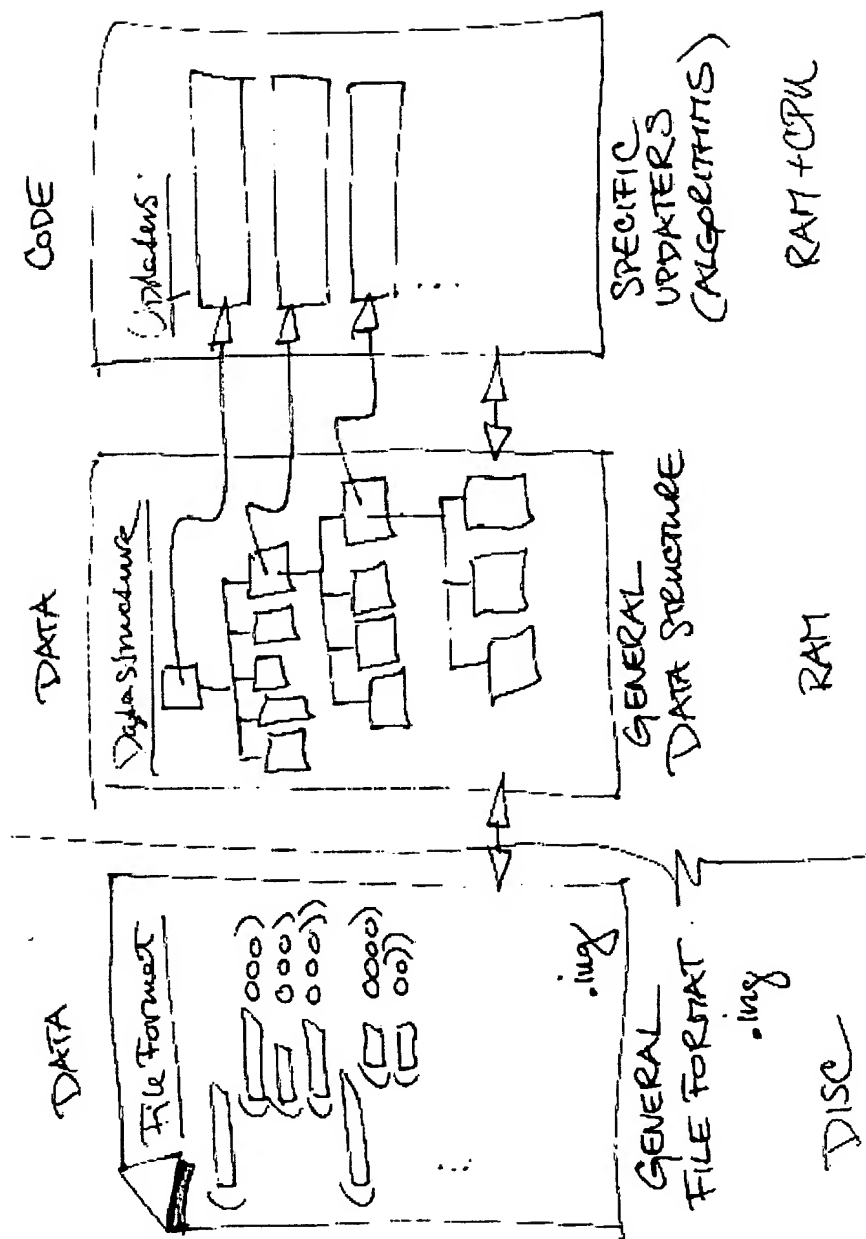 DATA
File Format
( ooo)
( ooo)
( ooo))
(
( oooo)
( oo))
(
...
.ing
GENERAL
FILE FORMAT
.ing
DISC
DATA
Data Structure
GENERAL
DATA STRUCTURE
RAM
CODE
Updaters
...
SPECIFIC
UPDATERS
(ALGORITHMS)
RAM + CPU